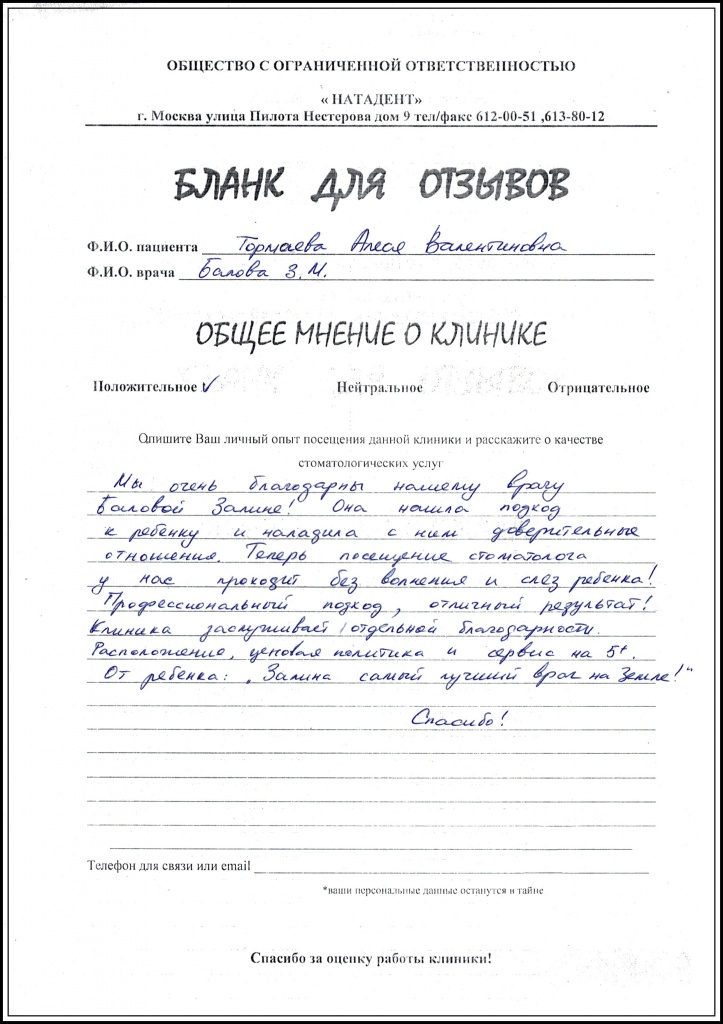 ОБЩЕСТВО С ОГРАНИЧЕННОЙ ОТВЕТСТВЕННОСТЬЮ
« НАТАДЕНТ»
г. Москва улица Пилота Нестерова дом 9 тел/факс 612-00-51 ,613-80-12
БЛАНК ДЛЯ ОТЗЫВОВ
Ф.И.О. пациента Тормаева Алеся Валентиновна
Ф.И.О. врача Балова З.М.
ОБЩЕЕ МНЕНИЕ О КЛИНИКЕ
Положительное ✓ Нейтральное Отрицательное
Опишите Ваш личный опыт посещения данной клиники и расскажите о качестве
стоматологических услуг
Мы очень благодарны нашему врачу
Баловой Залине! Она нашла подход
к ребенку и наладила с ним доверительные
отношения. Теперь посещение стоматолога
у нас проходит без волнения и слез ребенка!
Профессиональный подход, отличный результат!
Клиника заслуживает отдельной благодарности.
Расположение, ценовая политика и сервис на 5+.
От ребенка: „Залина самый лучший врач на Земле!“
Спасибо!
Телефон для связи или email
*ваши персональные данные останутся в тайне
Спасибо за оценку работы клиники!